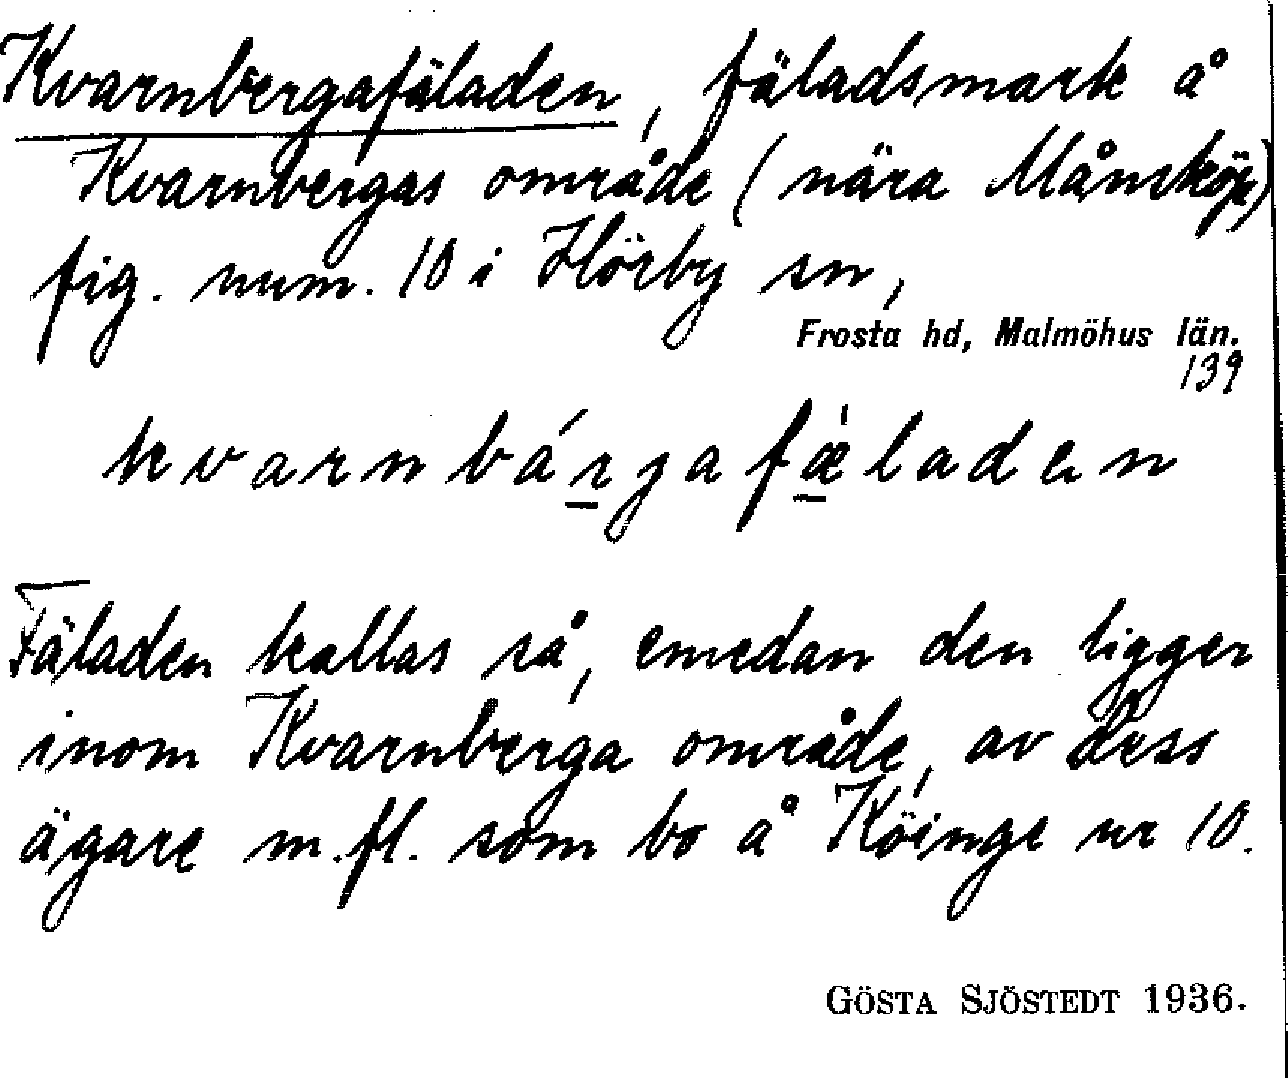 Kvarnbergafäladen, fäladsmark å
Kvarnbergas område (nära Månsköp)
fig. num. 10 i Hörby sn,
Frosta hd, Malmöhus län.
139
kvarnbárgafæ̀laden
Fäladen kallas så, emedan den ligger
inom Kvarnberga område, av dess
ägare m.fl. som bo å Köinge nr 10.
GÖSTA SJÖSTEDT 1936.